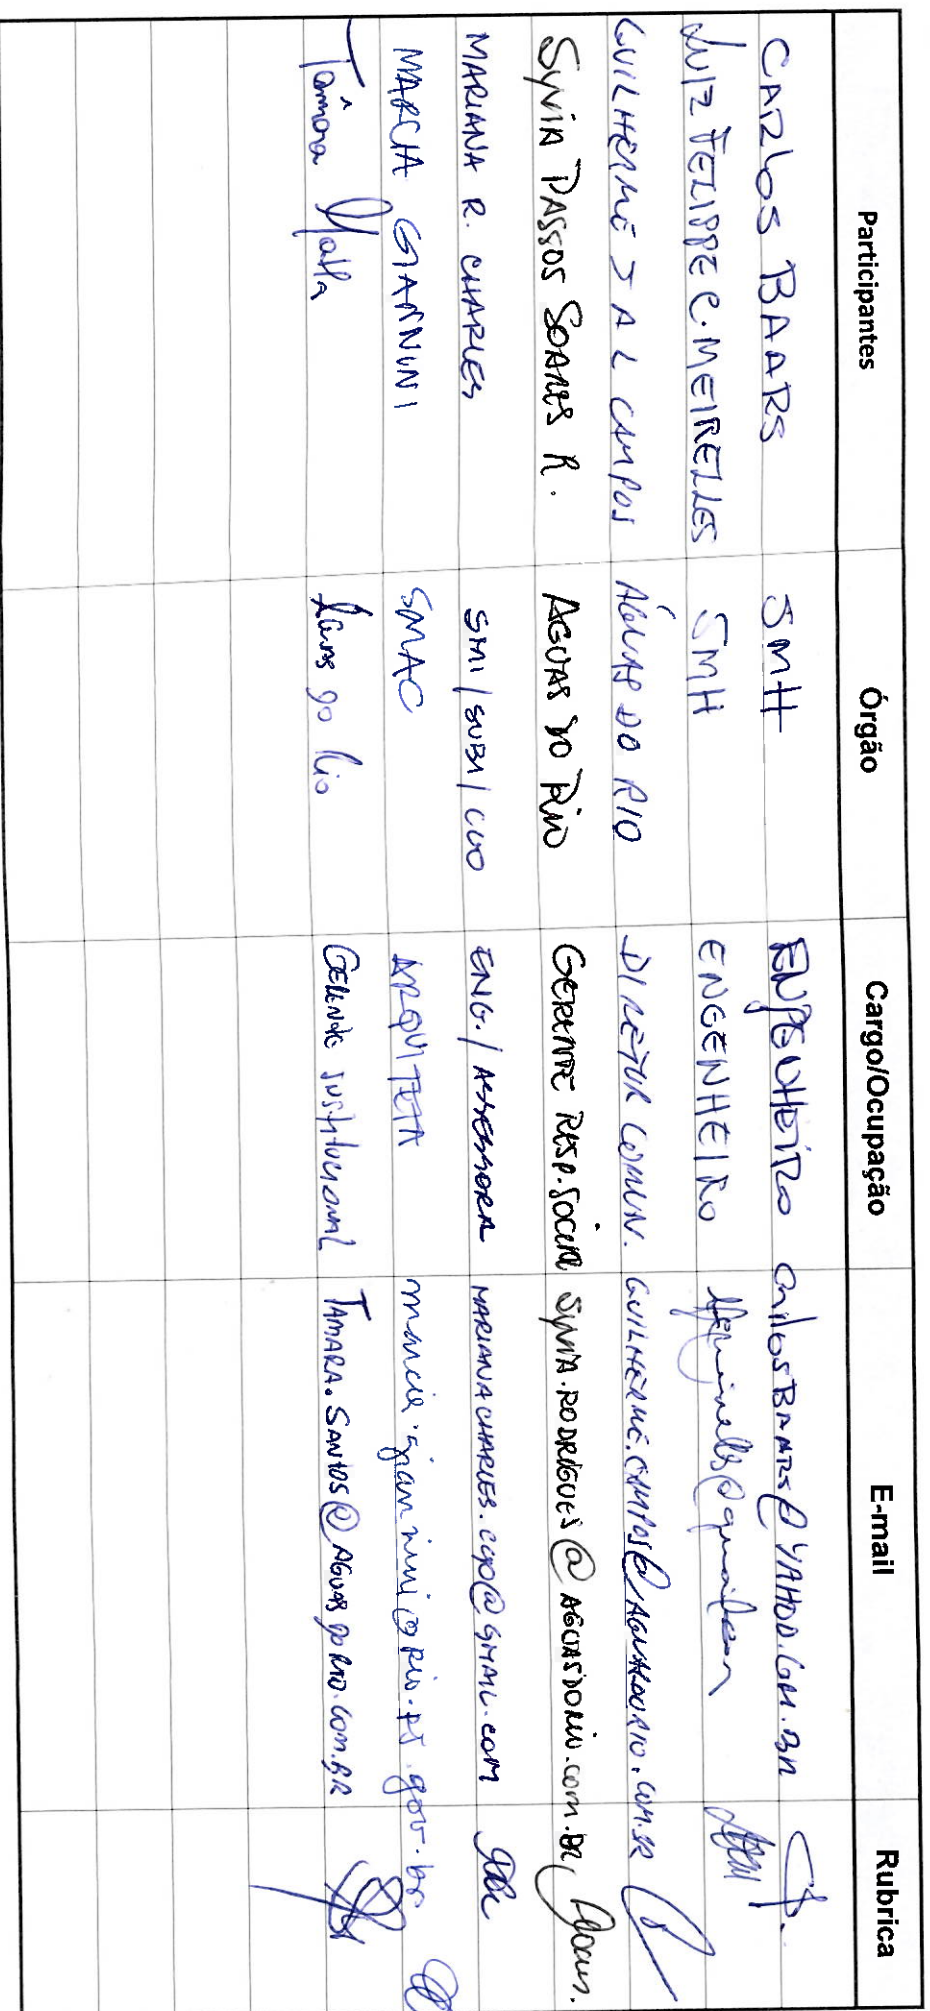 Participantes Órgão Cargo/Ocupação E-mail Rubrica
CARLOS BAARS SMH ENGENHEIRO CARLOSBAARS@YAHOO.COM.BR
LUIZ FELIPPE C. MEIRELLES SMH ENGENHEIRO
GUILHERME J A L CAMPOS ÁGUAS DO RIO DIRETOR COMUN. GUILHERME.CAMPOS@AGUASDORIO.COM.BR
SYLVIA PASSOS SOARES R. AGUAS DO RIO GERENTE RESP. SOCIAL SYLVIA.RODRIGUES@AGUASDORIO.COM.BR
MARIANA R. CHARLES SMI/SUBI/CGO ENG./ASSESSORA MARIANACHARLES.CGO@GMAIL.COM
MARCIA GIANNINI SMAC ARQUITETA marcia.giannini@rio.rj.gov.br
Tâmara do Rio GERENTE INSTITUCIONAL TAMARA.SANTOS@AGUASDORIO.COM.BR